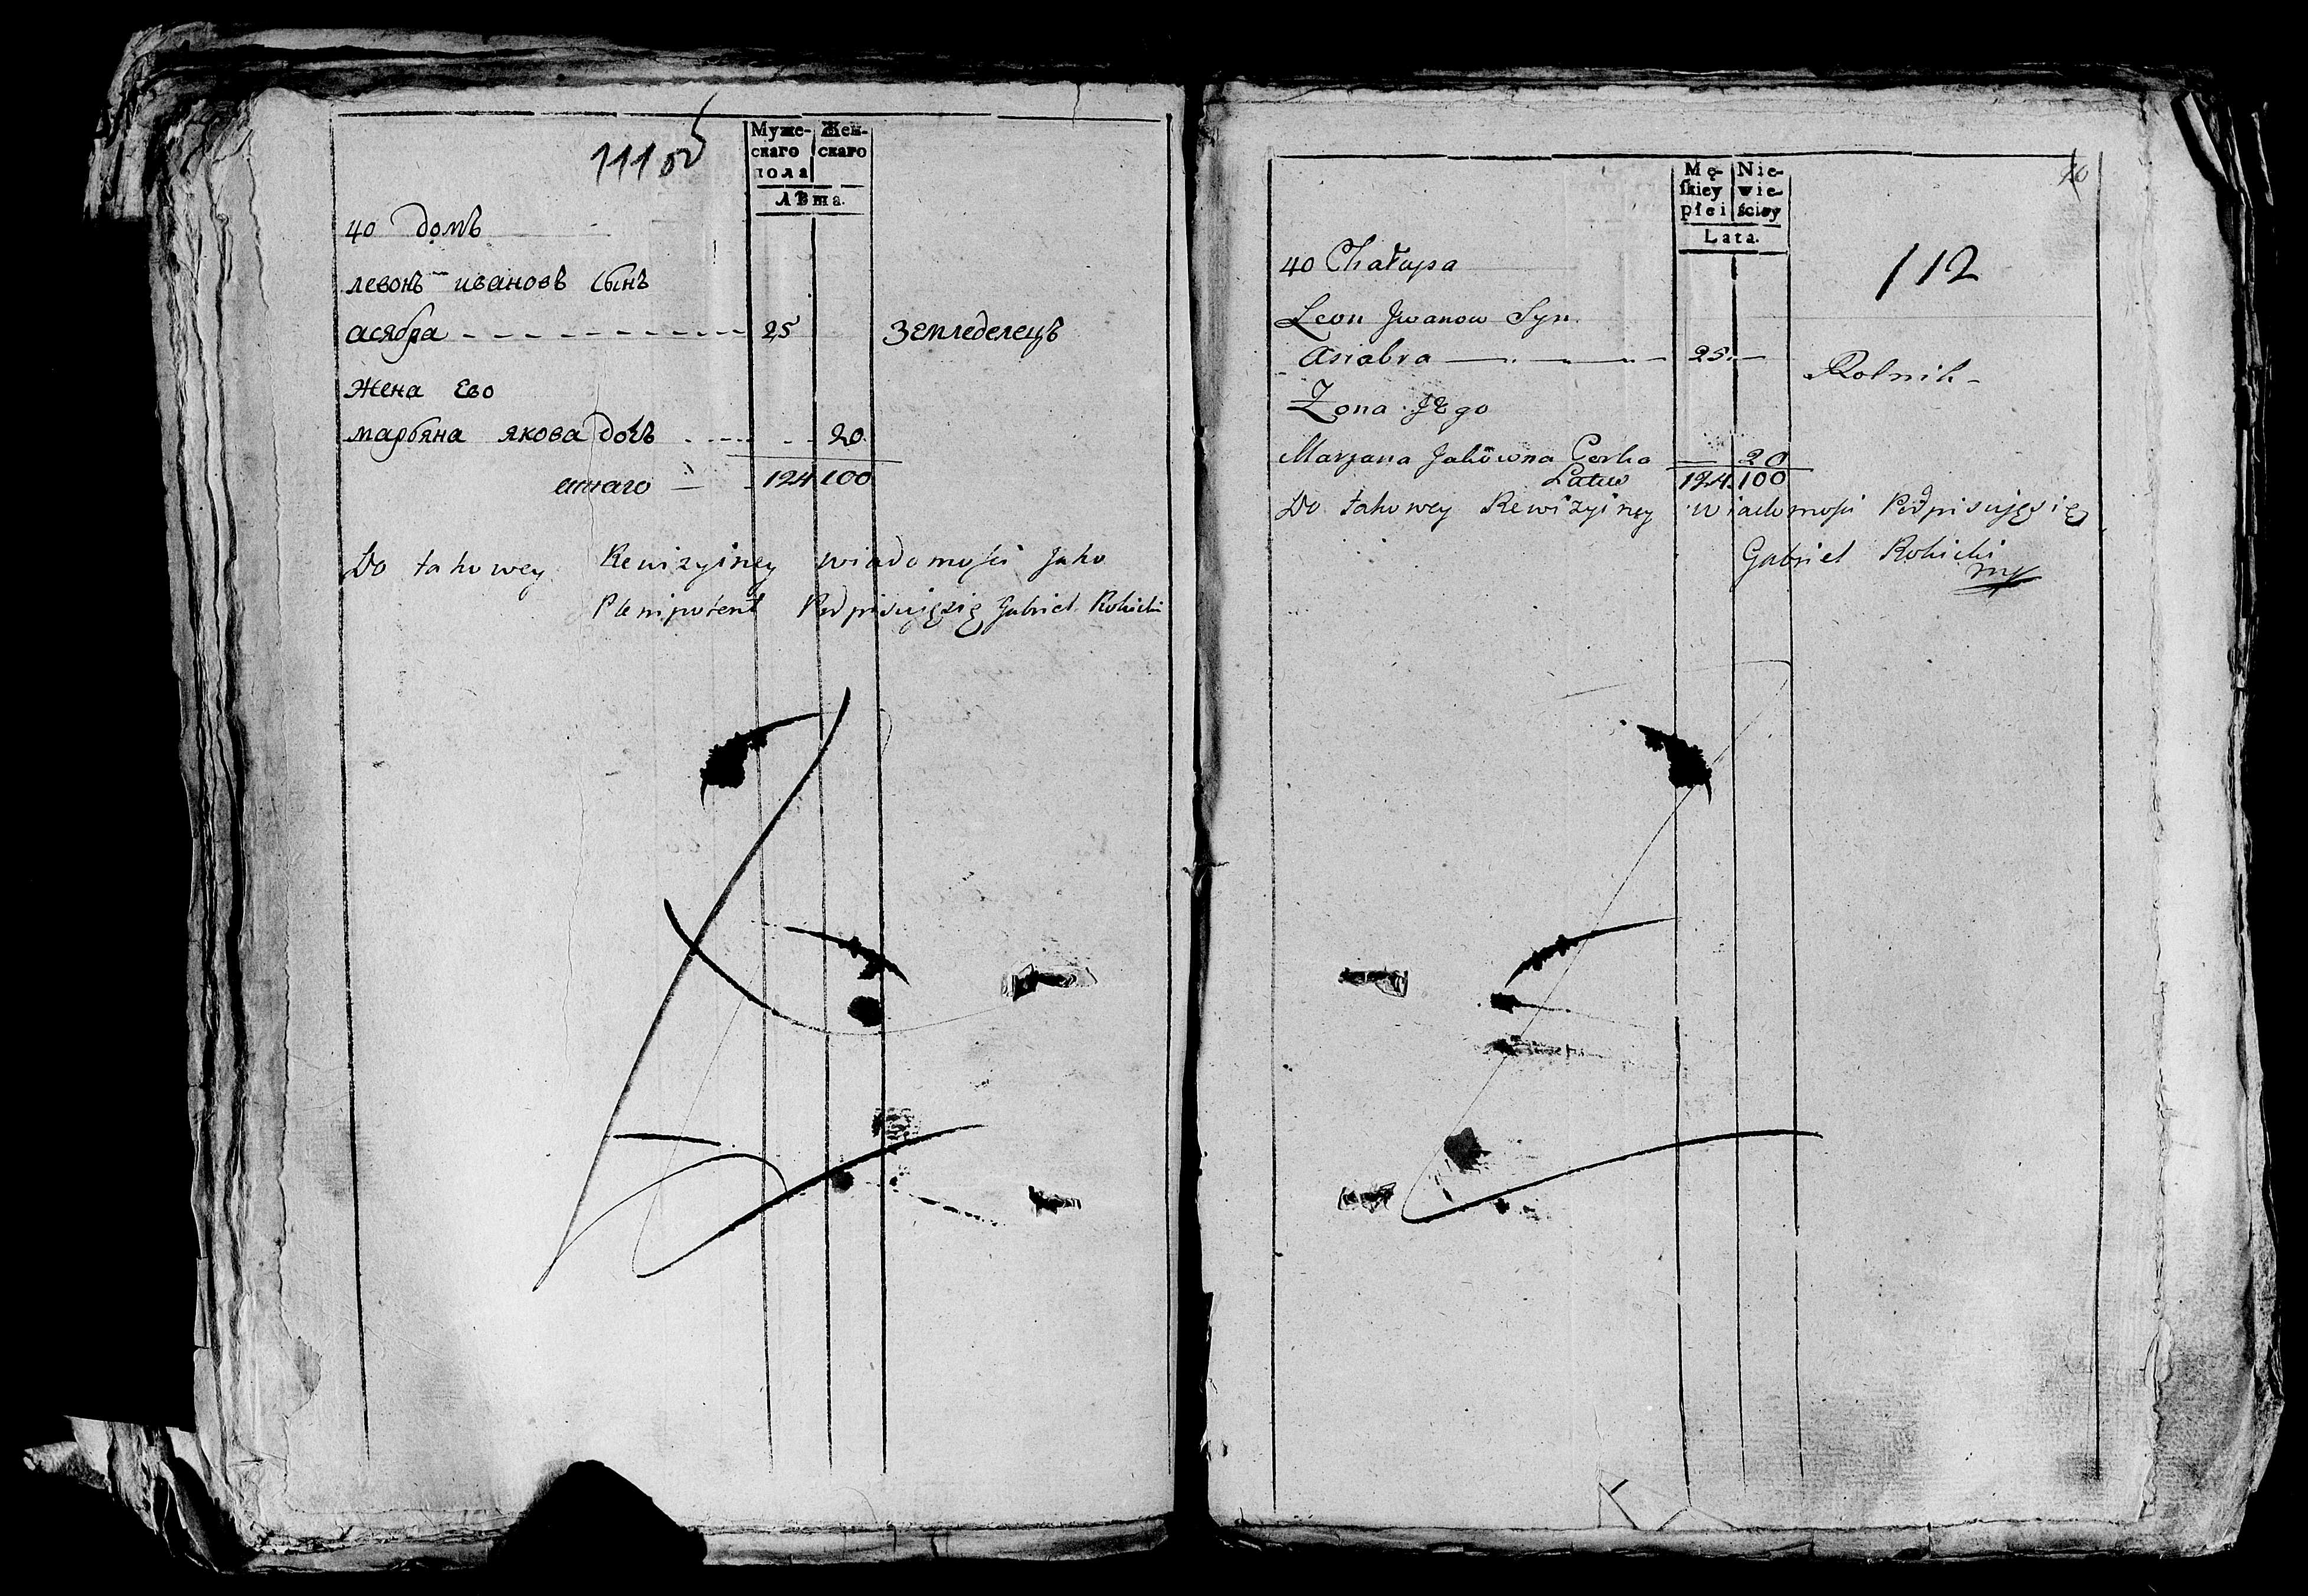 111 об
Муже- Жен-
скаго скаго
пола
Лѣта.
40 домъ
левонъ ивановъ сынъ
асябра 25 Земледелецъ
жена ево
марьяна якова дочь 20
124 100
Do takowey Rewizyiney wiadomości Jako
Plenipotent Podpisuję się Gabriel Rokicki
Mę- Nie-
skiey wie-
płei ściey
Lata.
112
40 Chałupa
Leon Jwanow Syn
Asiabra 25. Rolnik
Żona Jego
Maryana Jakówna Corka 20
Latus 124. 100
Do takowey Rewizyiney wiadomości Podpisuję się
Gabriel Rokicki
mp